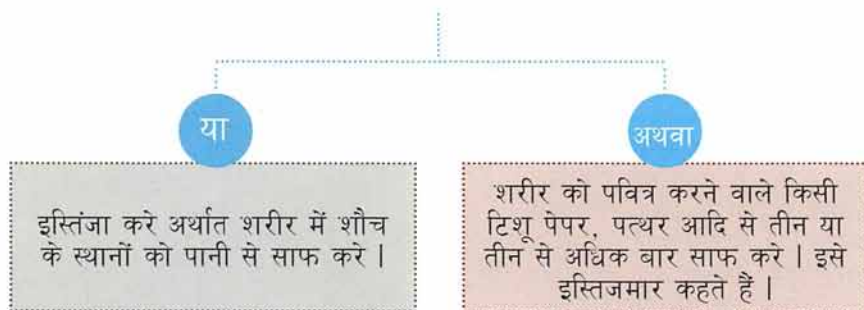 या
इस्तिंजा करे अर्थात शरीर में शौच
के स्थानों को पानी से साफ करे |
अथवा
शरीर को पवित्र करने वाले किसी
टिशू पेपर, पत्थर आदि से तीन या
तीन से अधिक बार साफ करे | इसे
इस्तिजमार कहते हैं |